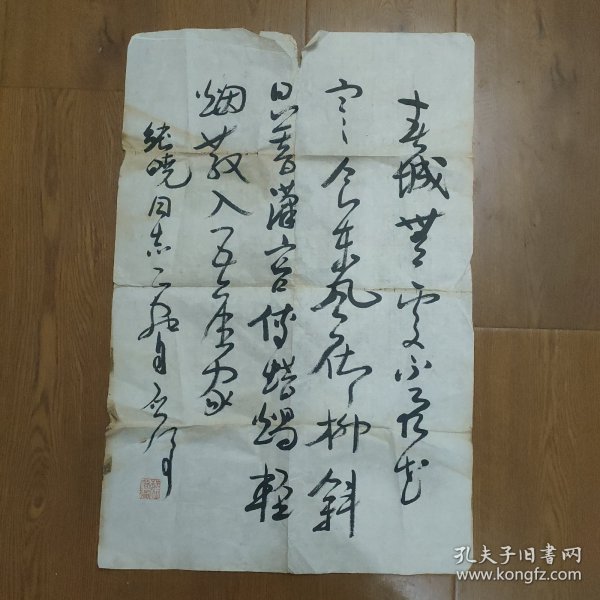 春城無處不飛花
寒食東風御柳斜
日暮漢宮傳蠟燭輕
烟散入五侯家
曉同志正
孔夫子旧书网
www.kongfz.com